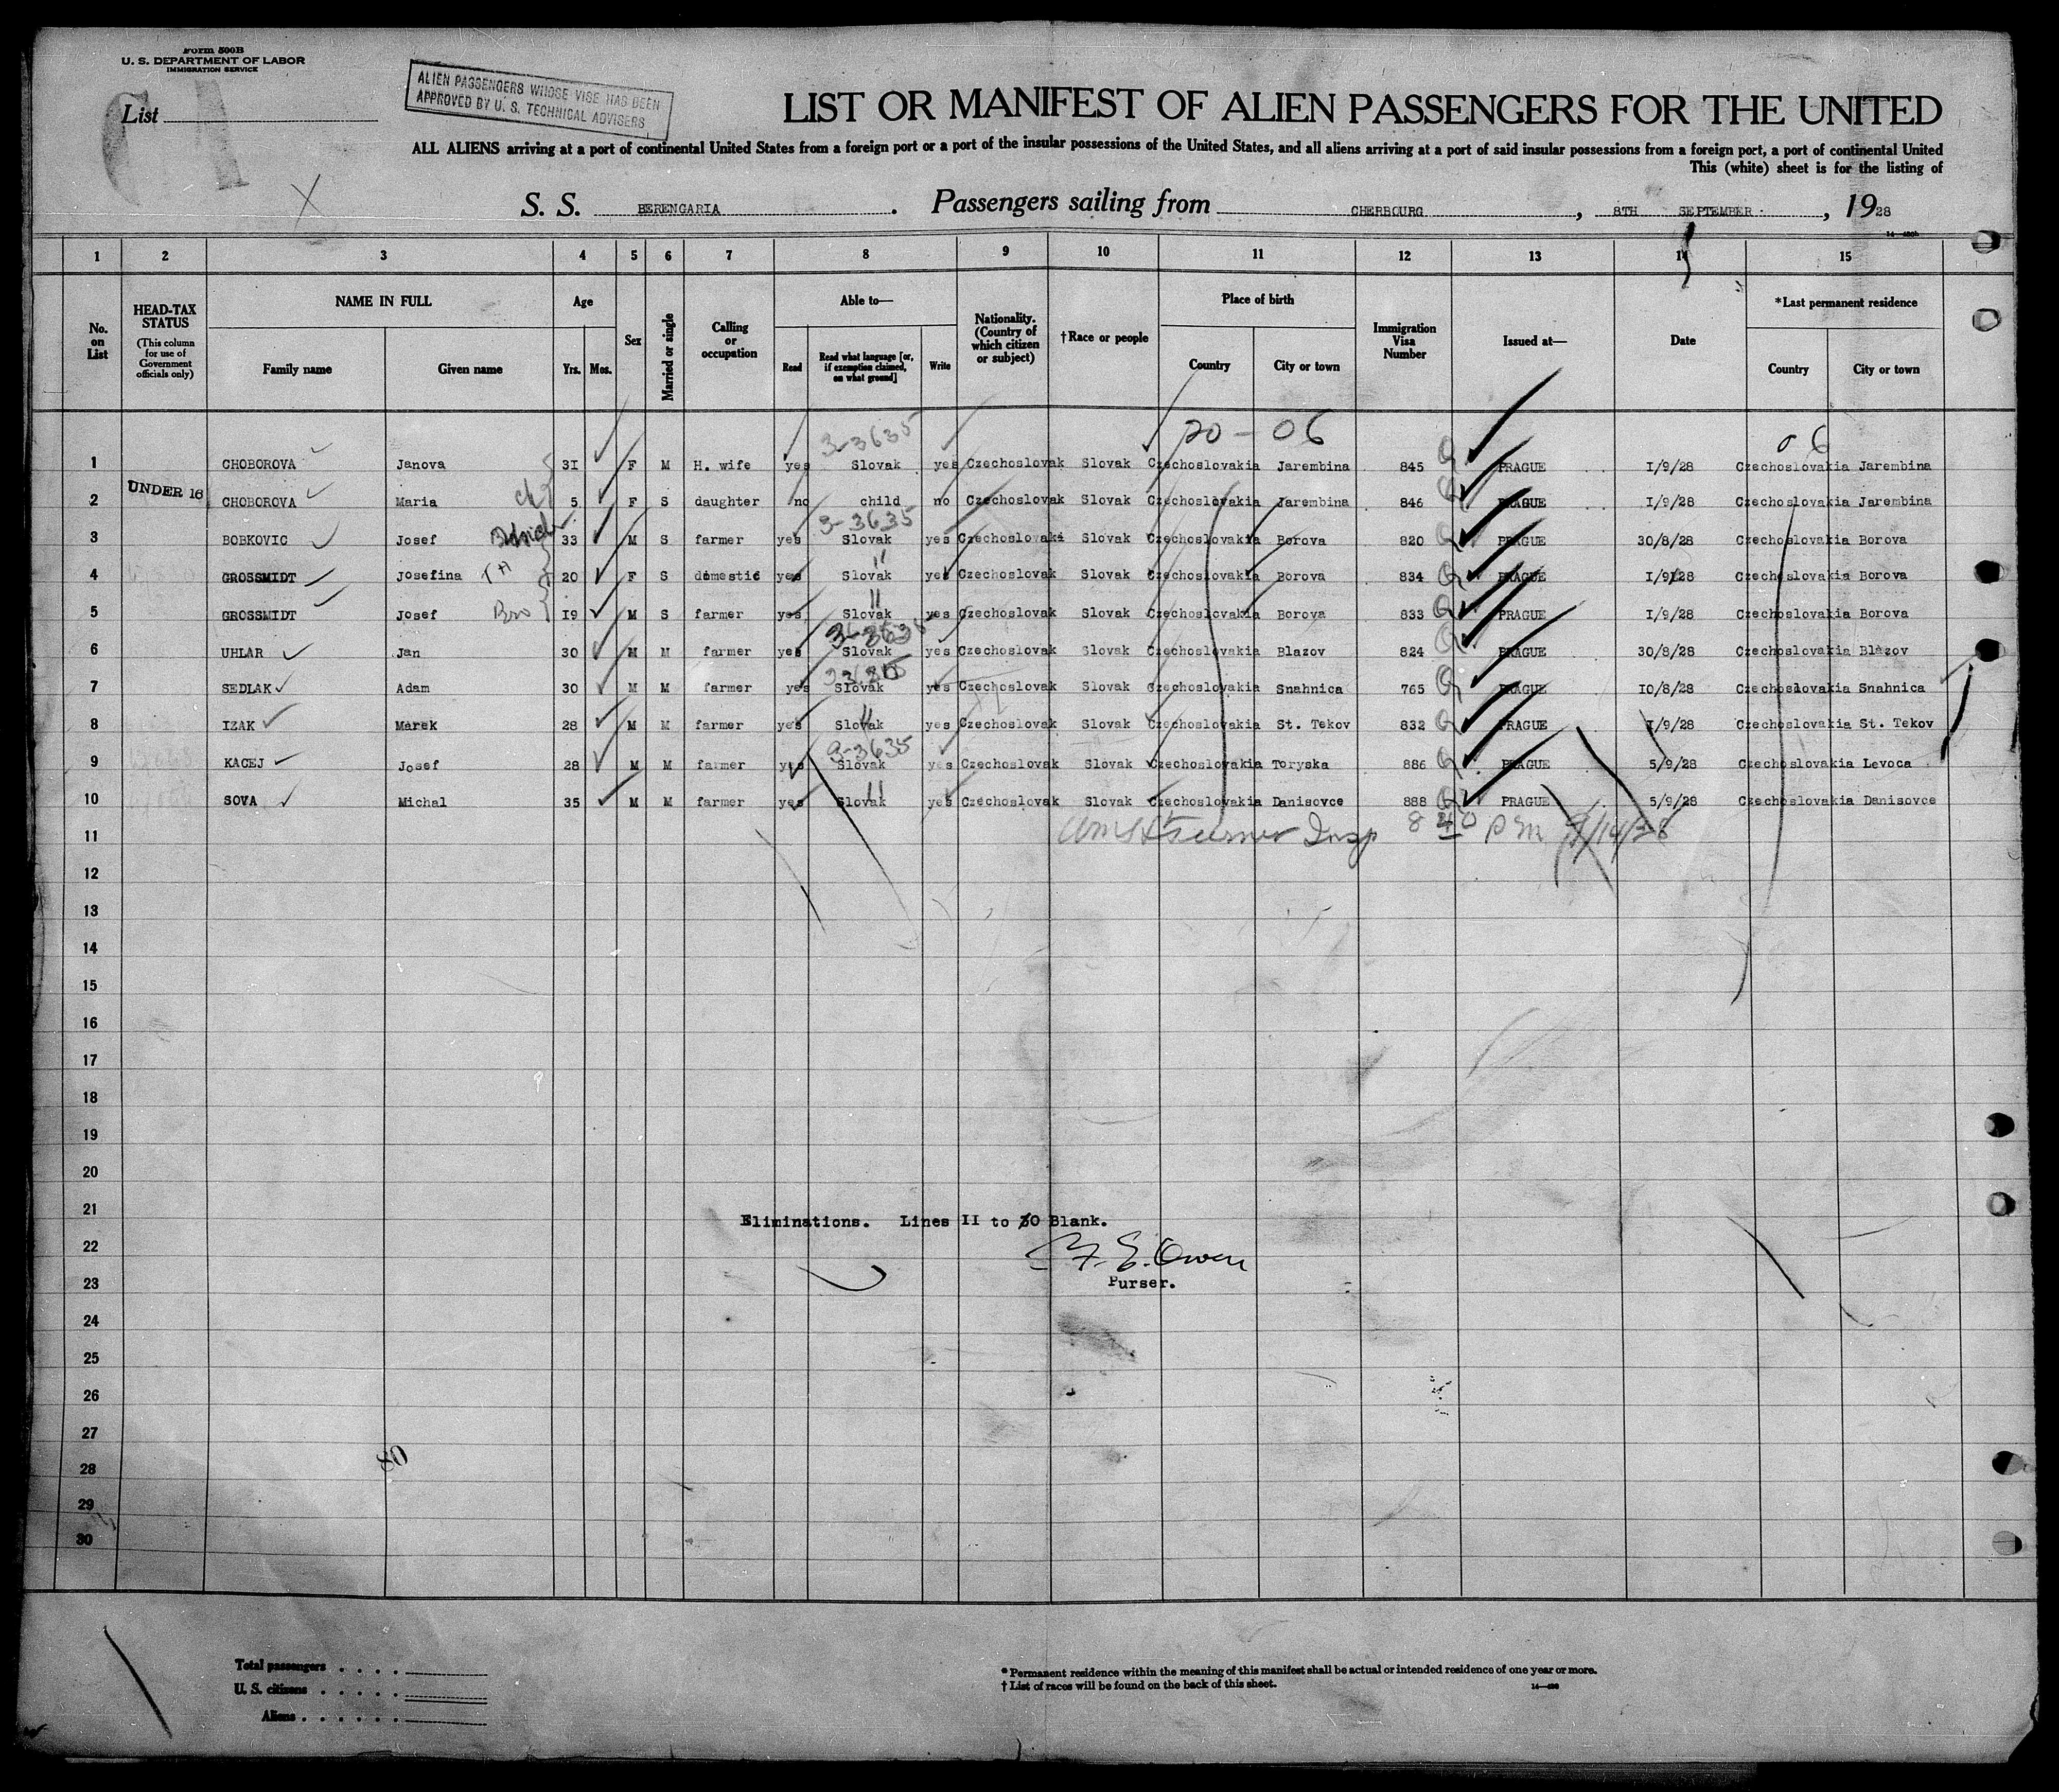 Form 500B
U. S. DEPARTMENT OF LABOR
IMMIGRATION SERVICE
List
ALIEN PASSENGERS WHOSE VISE HAS BEEN
APPROVED BY U. S. TECHNICAL ADVISERS
LIST OR MANIFEST OF ALIEN PASSENGERS FOR THE UNITED
ALL ALIENS arriving at a port of continental United States from a foreign port or a port of the insular possessions of the United States, and all aliens arriving at a port of said insular possessions from a foreign port, a port of continental United
This (white) sheet is for the listing of
S. S. BERENGARIA. Passengers sailing from CHERBOURG, 8TH SEPTEMBER, 1928
1 2 3 4 5 6 7 8 9 10 11 12 13 14 15
No. on List
HEAD-TAX STATUS
(This column for use of Government officials only)
NAME IN FULL
Family name Given name
Age
Yrs. Mos.
Sex
Married or single
Calling or occupation
Able to—
Read Read what language [or, if exemption claimed, on what ground] Write
Nationality. (Country of which citizen or subject)
†Race or people
Place of birth
Country City or town
Immigration Visa Number
Issued at—
Date
*Last permanent residence
Country City or town
3-3635 20 - 06 06
1 CHOBOROVA Janova 31 F M H. wife yes Slovak yes Czechoslovak Slovak Czechoslovakia Jarembina 845 PRAGUE 1/9/28 Czechoslovakia Jarembina
2 UNDER 16 CHOBOROVA Maria 5 F S daughter no child no Czechoslovak Slovak Czechoslovakia Jarembina 846 PRAGUE 1/9/28 Czechoslovakia Jarembina
3-3635
3 BOBKOVIC Josef 33 M S farmer yes Slovak yes Czechoslovak Slovak Czechoslovakia Borova 820 PRAGUE 30/8/28 Czechoslovakia Borova
4 GROSSMIDT Josefina 20 F S domestic yes Slovak yes Czechoslovak Slovak Czechoslovakia Borova 834 PRAGUE 1/9/28 Czechoslovakia Borova
5 GROSSMIDT Josef Bro 19 M S farmer yes Slovak yes Czechoslovak Slovak Czechoslovakia Borova 833 PRAGUE 1/9/28 Czechoslovakia Borova
3-3635
6 UHLAR Jan 30 M M farmer yes Slovak yes Czechoslovak Slovak Czechoslovakia Blazov 824 PRAGUE 30/8/28 Czechoslovakia Blazov
7 SEDLAK Adam 30 M M farmer yes Slovak yes Czechoslovak Slovak Czechoslovakia Snahnica 765 PRAGUE 10/8/28 Czechoslovakia Snahnica
8 IZAK Marek 28 M M farmer yes Slovak yes Czechoslovak Slovak Czechoslovakia St. Tekov 832 PRAGUE 1/9/28 Czechoslovakia St. Tekov
3-3635
9 KACEJ Josef 28 M M farmer yes Slovak yes Czechoslovak Slovak Czechoslovakia Toryska 886 PRAGUE 5/9/28 Czechoslovakia Levoca
10 SOVA Michal 35 M M farmer yes Slovak yes Czechoslovak Slovak Czechoslovakia Danisovce 888 PRAGUE 5/9/28 Czechoslovakia Danisovce
11 Insp 8 40 PM 9/14/28
12
13
14
15
16
17
18
19
20
21 Eliminations. Lines II to 30 Blank.
22 Owen
23 Purser.
24
25
26
27
28 80
29
30
Total passengers
U. S. citizens
Aliens
* Permanent residence within the meaning of this manifest shall be actual or intended residence of one year or more.
† List of races will be found on the back of this sheet.